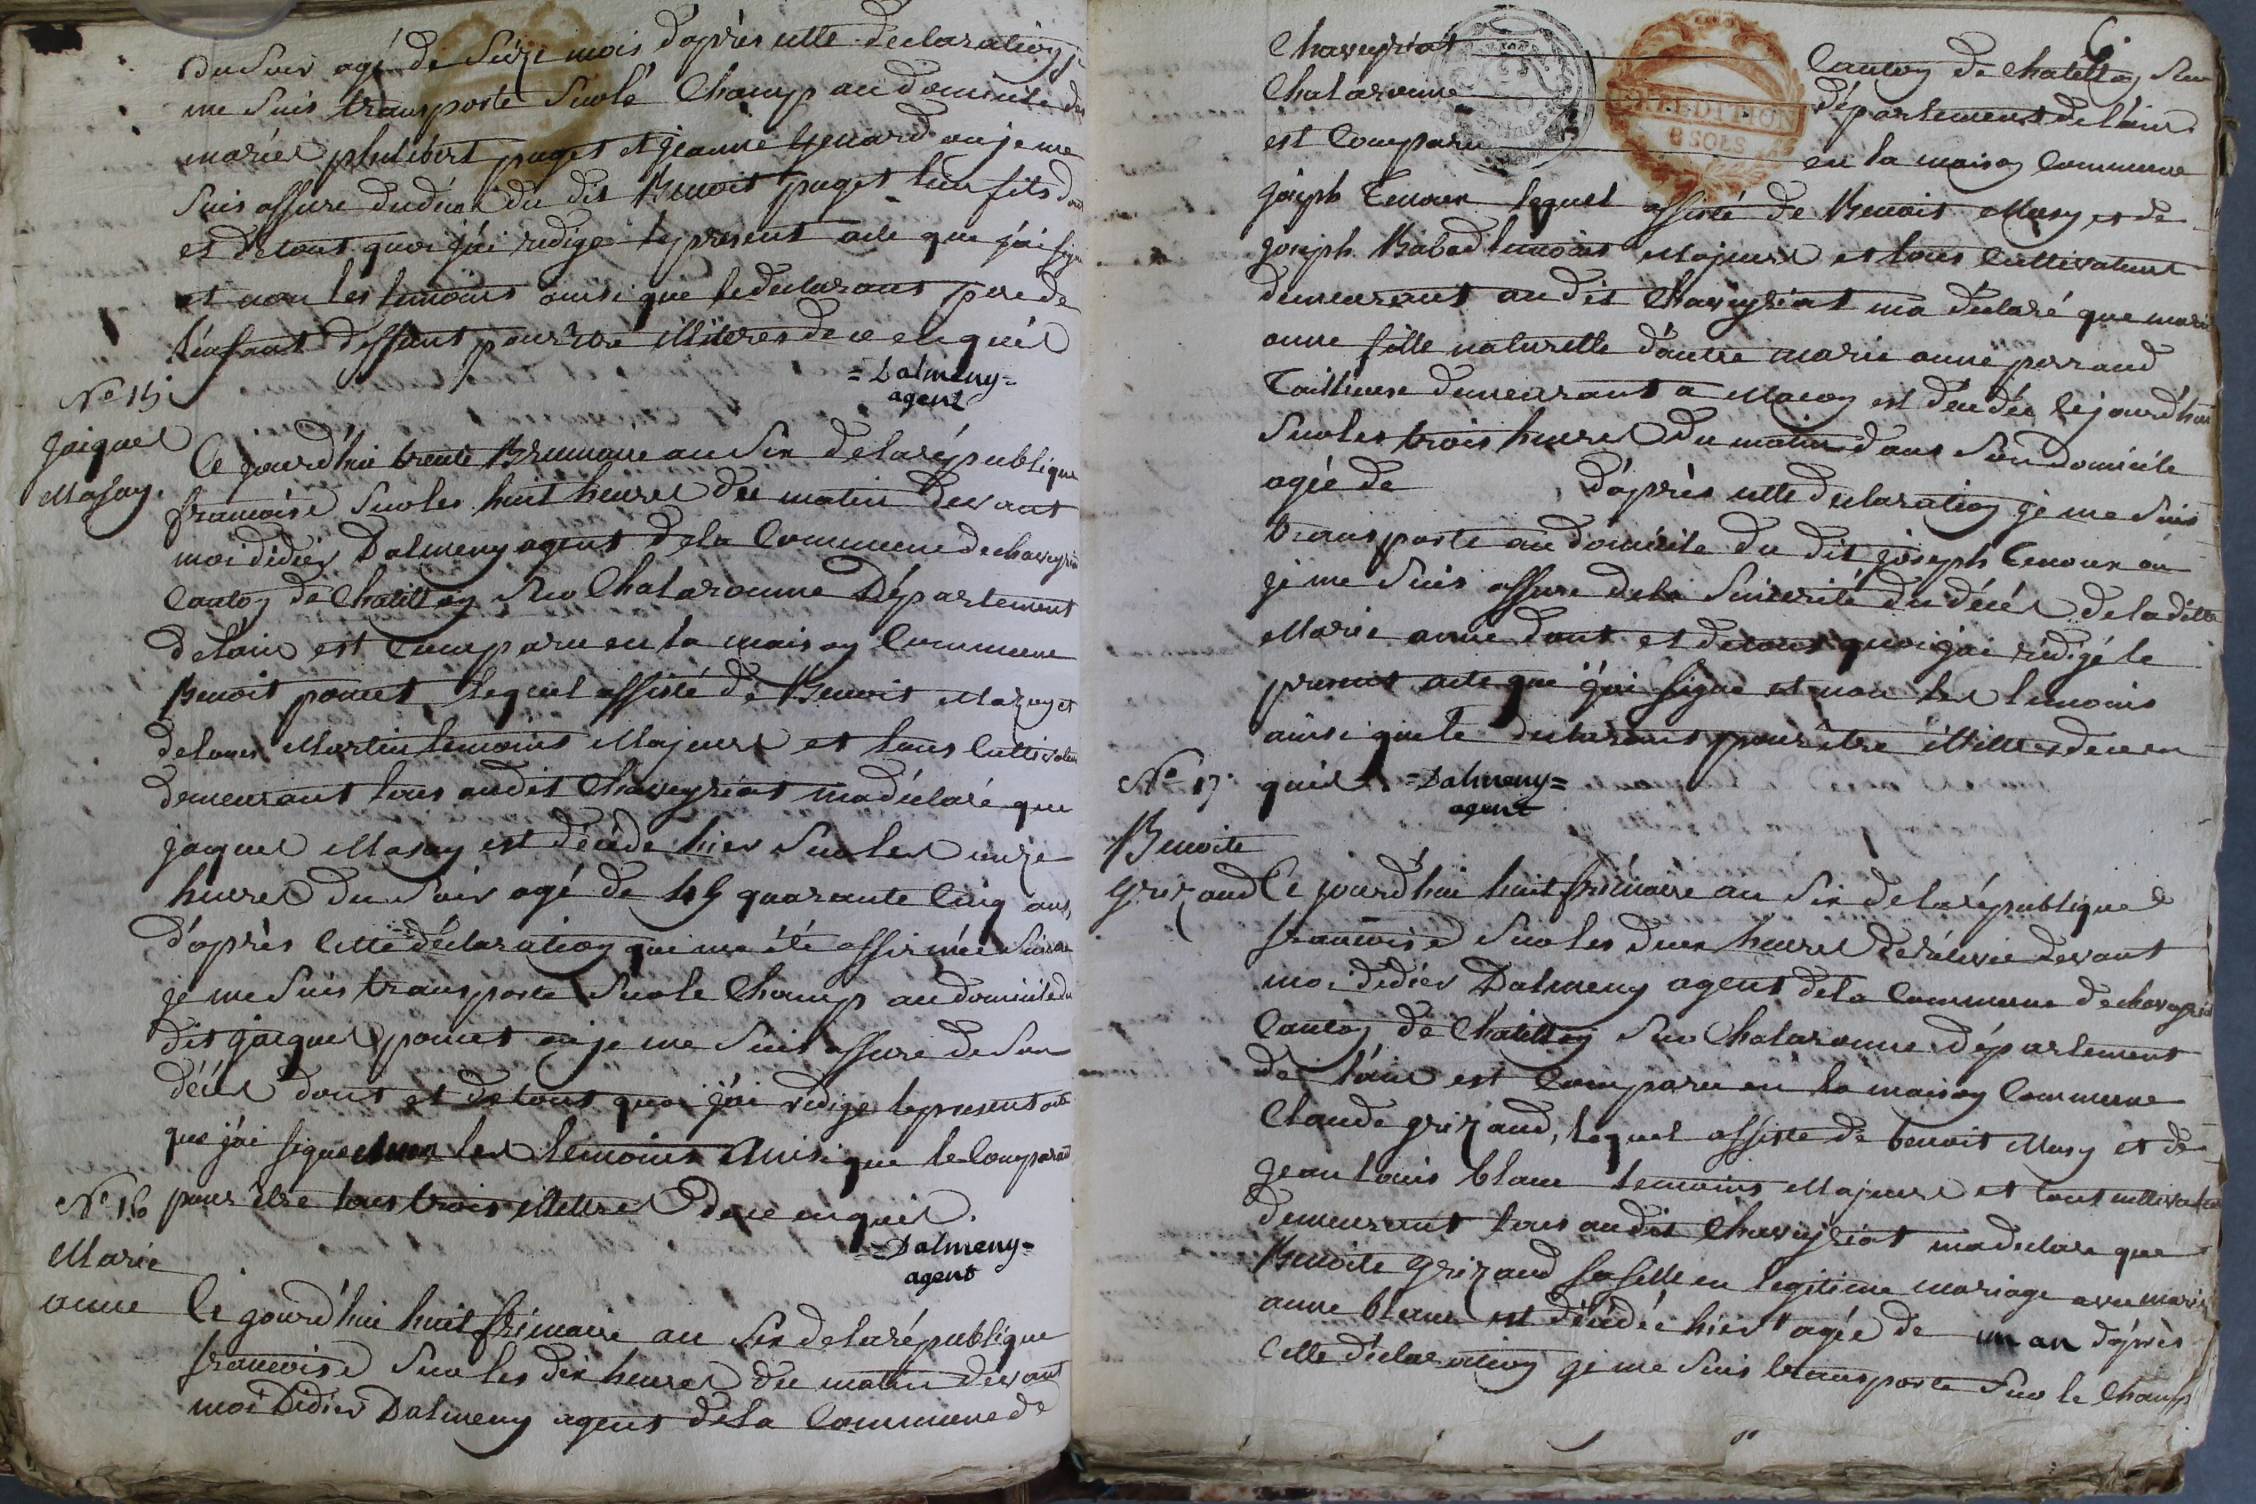 du soir agé de seize mois d'après cette declaration je
me suis transporté sur le champ au domicile des
mariés philibert puget et jeanne genard ou je me
suis assuré du décè du dit Benoit puget leur fils dont
et de tout quoi j'ai redigé le present acte que j'ai signé
et non les temoins ainsi que le declarant pere de
l'enfant deffunt pour être illitéres de ce enquis
= Dalmeny =
agent
No 15
jacques
Masoy.
Ce jourd'hui trente Brumaire an six de la république
françoise sur les huit heures du matin devant
moi didier Dalmeny agent de la Commune de chaveyriat
Canton de Chatillon sur Chalaronne Département
de l'ain est Comparu en la maison Commune
Benoit poncet lequel assisté de Benoit Mazuy et
de louis Martin temoins Majeurs et tous Cultivateurs
demeurant tous audit Chaveyriat m'a déclaré que
jacques Masoy est décédé hier sur les onze
heures du soir agé de 45 quarante Cinq ans,
d'après Cette déclaration qui m'a été affirmée sincere
je me suis transporté sur le Champ au domicile du
dit jacques poncet ou je me suis assuré de son
décès dont et de tout quoi j'ai redigé le present acte
que j'ai signé et non les temoins Ainsi que le Comparant
pour être tous trois illettrés de ce enquis.
= Dalmeny =
agent
No 16
Marie
anne
Ce jourd'hui huit frimaire an six de la république
françoise sur les dix heures du matin devant
moi Didier Dalmeny agent de la Commune de
6.
Chaveyriat Canton de Chatillon sur
Chalaronne département de l'ain
est Comparu en la maison Commune
EXPEDITION
8 SOLS
joseph Tenoux lequel assisté de Benoit Masy et de
joseph Babad temoins Majeurs et tous Cultivateurs
demeurant audit Chaveyriat m'a déclaré que marie
anne fille naturelle d'autre marie anne perraud
Tailleuse demeurant a Macon est décédée le jourd'hui
sur les trois heures du matin dans son domicile
agée de d'après cette declaration je me suis
transporté au domicile du dit joseph Tenoux ou
je me suis assuré de la sincerité du décès de la ditte
Marie anne dont et de tout quoi j'ai redigé le
present acte que j'ai signé et non les temoins
ainsi que le declarant pour être illettrés de ce en
quis = Dalmeny =
agent
No 17
Benoite
grizaud
Ce jourd'hui huit frimaire an six de la république
françoise sur les deux heures de relevée devant
moi didier Dalmeny agent de la Commune de chaveyriat
Canton de Chatillon sur Chalaronne département
de l'ain est Comparu en la maison Commune
Claude grizaud, lequel assisté de benoit Masy et de
jean louis blanc temoins Majeurs et tous cultivateurs
demeurant tous audit Chaveyriat m'a declaré que
Benoite grizaud sa fille en legitime mariage avec marie
anne blanc est décédée hier agée de un an d'après
Cette déclaration je me suis transporté sur le Champ